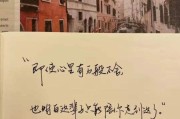 “即使心里有万般不舍,
也明白这辈子只能陪你走到这了”